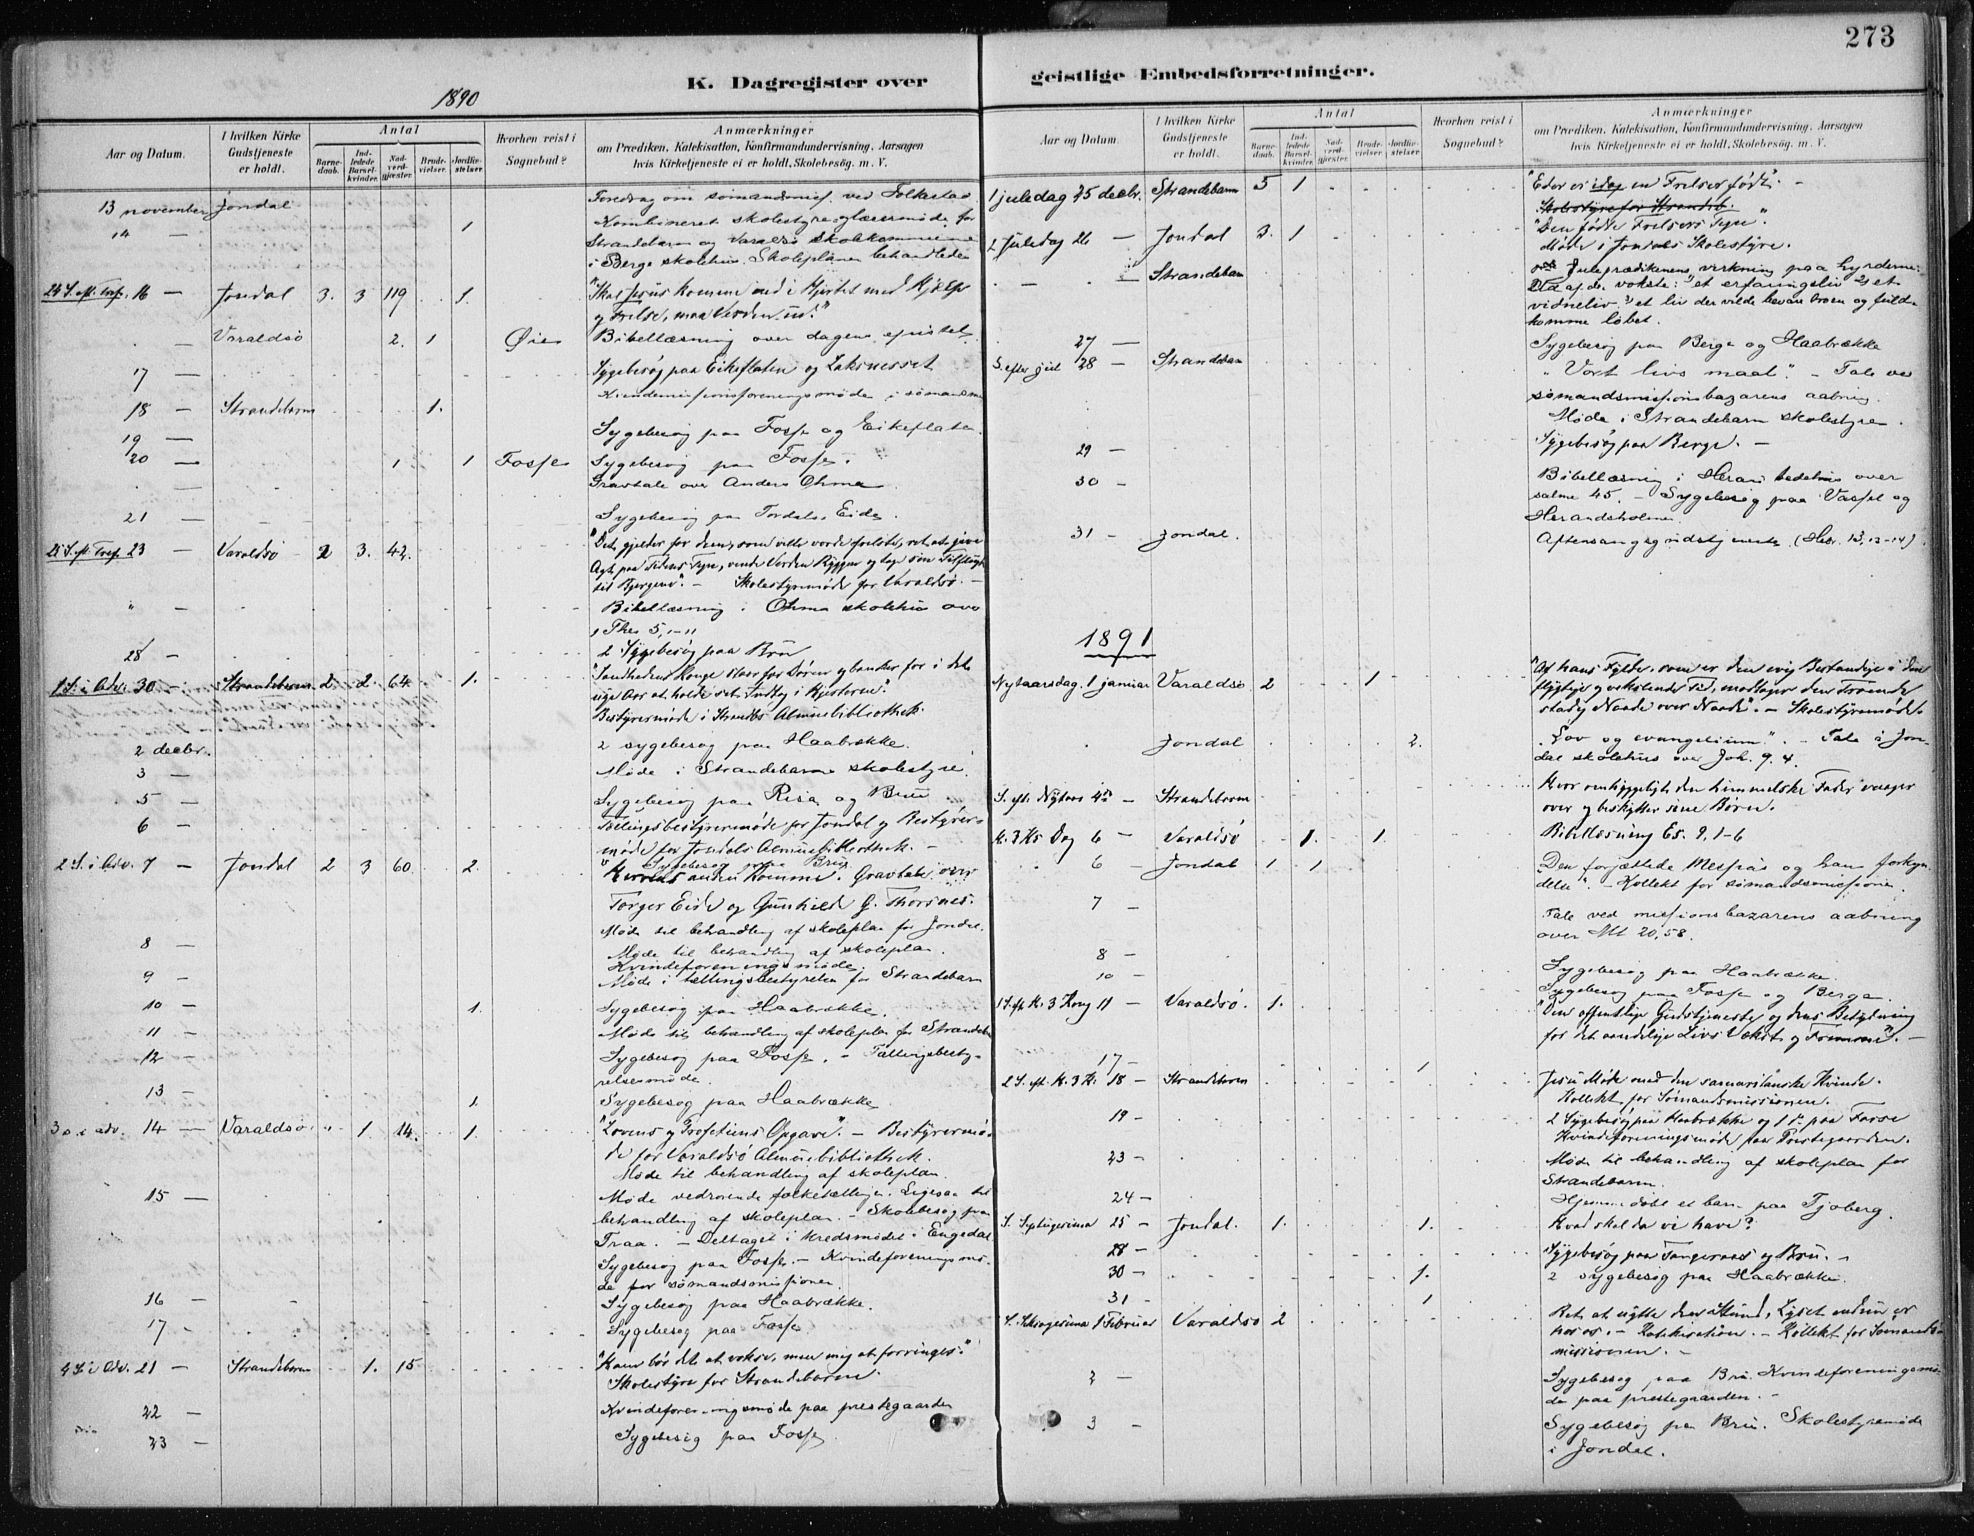 273
K. Dagregister over
geistlige Embedsforretninger.
1890
Aar og Datum.
I hvilken Kirke Gudstjeneste er holdt.
Antal
Barne-daab.
Ind-ledede Barsel-kvinder.
Nad-verd-gjester.
Brude-vielser.
Jordfæ-stelser.
Hvorhen reist i Sognebud?
Anmærkninger
om Prædiken, Katekisation, Konfirmandundervisning, Aarsagen
hvis Kirketjeneste ei er holdt, Skolebesøg, m. V.
13 november Jondal Foredrag om sømandsmis. ved Folkestad
14 — 1 Kombineret skolestyre- møde for
Strandebarm og Varaldsø
i Berge skolehus. Skoleplanen behandledes
24 S. eft. Tref. 16 — Jondal 3. 3 119 1. "Skal Jesus komme ind i Hjertet med Hjælp
og Frelse, maa Verden ud."
Varaldsø 2. 1 Øie Bibellæsning over dagens epistel
17 — Sygebesøg paa Eikeflaten og Laksnesset
18 — Strandebarm 1. Kvindemissionsforeningsmøde i
19 — Sygebesøg paa Fosse og Eikeflaten.
20 — 1 1 Fosse Sygebesøg paa Fosse.
Gravtale over Anders Ohma
21 — Sygebesøg paa Eide.
25 S. eft. Tref. 23 — Varaldsø 2 3. 42. "Det gjelder for dem, som ville vorde frelste, ret at give
Agt paa Tidens Tegn, vende Verden Ryggen og tage sin Tilflugt
til Bjergene". — Skolestyremøde for Varaldsø. —
" — Bibellæsning i Ohma skolehus over
1 Thes 5, 1-11
28 — 2 Sygebesøg paa Bru
1 S. i Adv. 30 — Strandebarm 2. 2. 64. 1. "Sandhedens Konge staar for Døren og banker for i det
nye Aar at holde sit Indtog i Hjerterne."
Bestyrermøde i Strandbs Almuebibliothek.
2 decbr. 2 sygebesøg paa Haabrække.
3 — Møde i Strandebarms skolestyre.
5 — Sygebesøg paa Risa og Bru
6 — Tællingsbestyrermøde for Jondal og Bestyrer-
møde for Jondals Almuebibliothek. —
Sygebesøg paa Bru
2 S. i Adv. 7 — Jondal 2 3 60. 2. "Herrens anden Komme. Gravtale over
Torger Eide og Gunhild G. Thorsnes.
Møde til behandling af skoleplan for Jondal.
8 — Møde til behandling af skoleplan.
Kvindeforeningsmøde.
9 — Møde i tællingsbestyrelsen for Strandebarm
10 — 1. Sygebesøg paa Haabrække.
11 — Møde til behandling af skoleplan for Strandeb.
12 — Sygebesøg paa Fosse. — Tællingsbesty-
relsesmøde.
13 — 1. Sygebesøg paa Haabrække.
3 s. i adv. 14 — Varaldsø " 1. 14. 1. "Lovens og Profetiens Opgave". — Bestyrermø-
de for Varaldsø Almuebibliothek.
Møde til behandling af skoleplan
15 — Møde vedrørende folketællingen. Ligesaa til
behandling af skoleplan. — Skolebesøg paa
Traa. — Deltaget i kredsmødet i Engedal
Sygebesøg paa Fosse. — Kvindeforeningsmø-
de for sømandsmissionen.
16 — Sygebesøg paa Haabrække.
17 — Sygebesøg paa Fosse
4 S. i Adv. 21 — Strandebarm 1. 15 "Ham bør det at vokse, men mig at forringes."
Skolestyre for Strandebarm.
22 — Kvindeforeningsmøde paa prestegaarden
23 — Sygebesøg paa Fosse
Aar og Datum.
I hvilken Kirke Gudstjeneste er holdt.
Antal
Barne-daab.
Ind-ledede Barsel-kvinder.
Nad-verd-gjester.
Brude-vielser.
Jordfæ-stelser.
Hvorhen reist i Sognebud?
Anmærkninger
om Prædiken, Katekisation, Konfirmandundervisning, Aarsagen
hvis Kirketjeneste ei er holdt, Skolebesøg, m. V.
1 juledag 25 decbr. Strandebarm 5 1 "Eder er idag en Frelser født". —
Skolestyre for Strandeb.
2 Juledag 26 — Jondal 3. 1 "Den fødte Frelsers Tegn".
Møde i Jondals Skolestyre.
— Strandebarm Juleprædikenens virkning paa hyrderne:
"et erfaringsliv 2) et
vidneliv 3) et liv der vilde bevare troen og fuld-
komme løbet.
27 — Sygebesøg paa Berge og Haabrække
S. efter jul 28 — Strandebarm "Vort livs maal". — Tale ved
sømandsmissionsbazarens aabning.
Møde i Strandebarm skolestyre.
29 — Sygebesøg paa Berge. —
30 — Bibellæsning i Herand bedehus over
salme 45. — Sygebesøg paa Vassel og
Herandsholmen.
31 — Jondal. Aftensangsgudstjeneste. (Hebr. 13, 13-14).
1891
Nytaarsdag 1 januar Varaldsø 2 1 "Af hans Fylde, som er den evig Bestandige i den
flygtige og vekslende Tid, modtager den Troende
stadig Naade over Naade". — Skolestyremøde.
Jondal 2. "Lov og evangelium". — Tale i Jon-
dal skolehus over Joh. 9. 4.
S. eft. Nytaar 4de — Strandebarm Hvor omhyggeligt den himmelske Fader vaager
over og beskytter sine Børn.
H. 3 K's Dag 6 — Varaldsø 1. 1. Bibellæsning Es. 9, 1-6
6 — Jondal 1 1 "Den forjættede Messias og hans forkyn-
delse". — Kollekt for sømandsmissionen.
7 — Tale ved missionsbazarens aabning
over Mt 20, 58.
8 — Sygebesøg paa Haabrække.
10 — Sygebesøg paa Fosse og Berge.
1 S. eft. H. 3 Kong. 11 — Varaldsø. 1. "Den offentlige Gudstjeneste og dens Betydning
for det aandelige Livs Vækst og Fremme". —
17 — 1
2 S. eft. H. 3 K. 18 — Strandebarm Jesu Møde med den samaritanske Kvinde.
Kollekt for Sømandsmissionen.
19 — 2 Sygebesøg paa Haabrække og 1 paa Fosse
Kvindeforeningsmøde paa Prestegaarden.
23 — Møde til behandling af skoleplan for
Strandebarm.
24 — Hjemmedøbt et barn paa Tjoberg.
S. Septuagesima 25 — Jondal. 1. 1. Hvad skal da vi have?
28 — Sygebesøg paa Tangeraas og Bru. —
30 — 1. 2 sygebesøg paa Haabrække.
31 — 1
S. Seksagesima 1 Februar Varaldsø 2 Ret at nytte den Stund, Lyset endnu er
hos os. — Katekisation. — Kollekt for Sømands-
missionen. —
2 — Sygebesøg paa Bru. Kvindeforeningsmø-
de paa prestegaarden. —
3 — Sygebesøg paa Bru. Skolestyremøde
i Jondal.